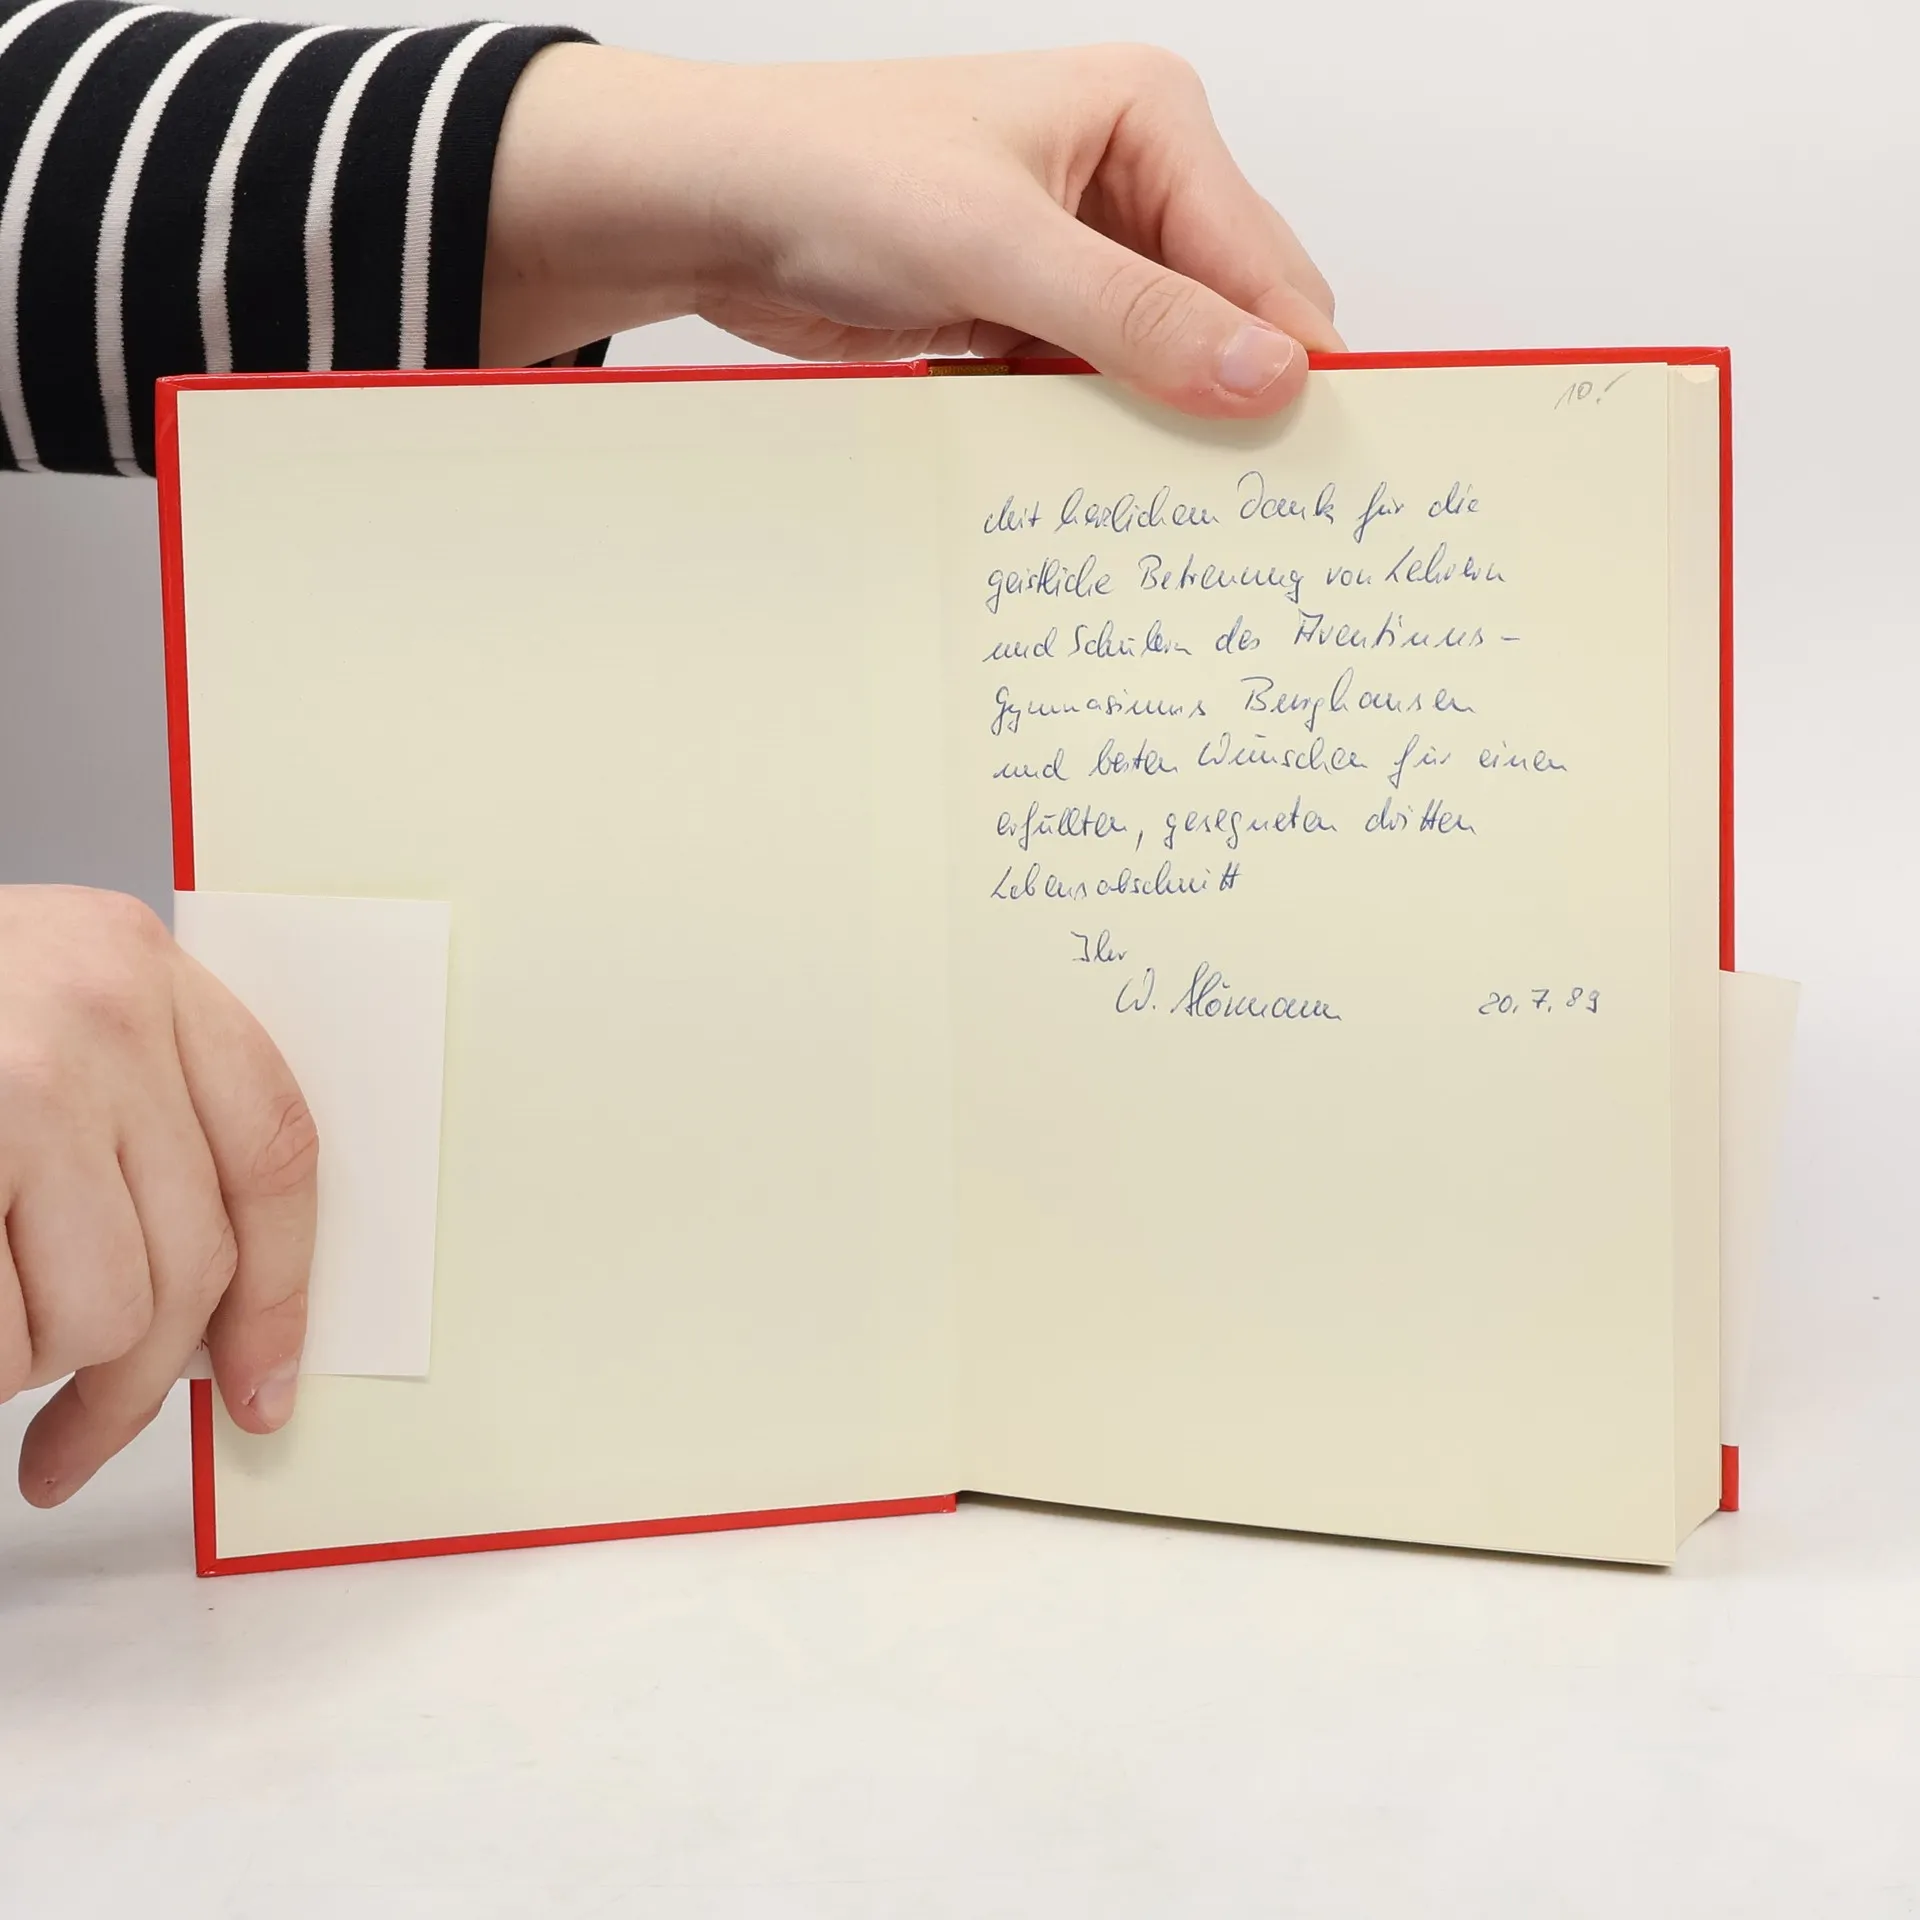 10.-
Mit herzlichem Dank für die
geistliche Betreuung von Lehrern
und Schülern des Aventinus-
Gymnasiums Burghausen
und besten Wünschen für einen
erfüllten, gesegneten dritten
Lebensabschnitt
Ihr
W.
20.7.89